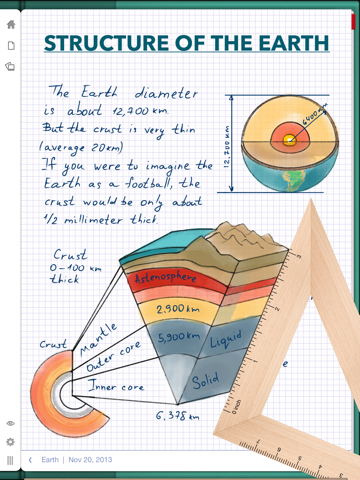 STRUCTURE OF THE EARTH
The Earth diameter
is about 12,700 km
But the crust is very thin
(average 20km)
If you were to imagine the
Earth as a football, the
crust would be only about
1/2 millimeter thick
6400 km
12,700 km
Crust
0-100 km
thick
Astenosphere
2,900 km
5,900 km
Liquid
Solid
6,378 km
Crust
Mantle
Outer core
Inner core
0 inch
1
2
3
Earth | Nov 20, 2013